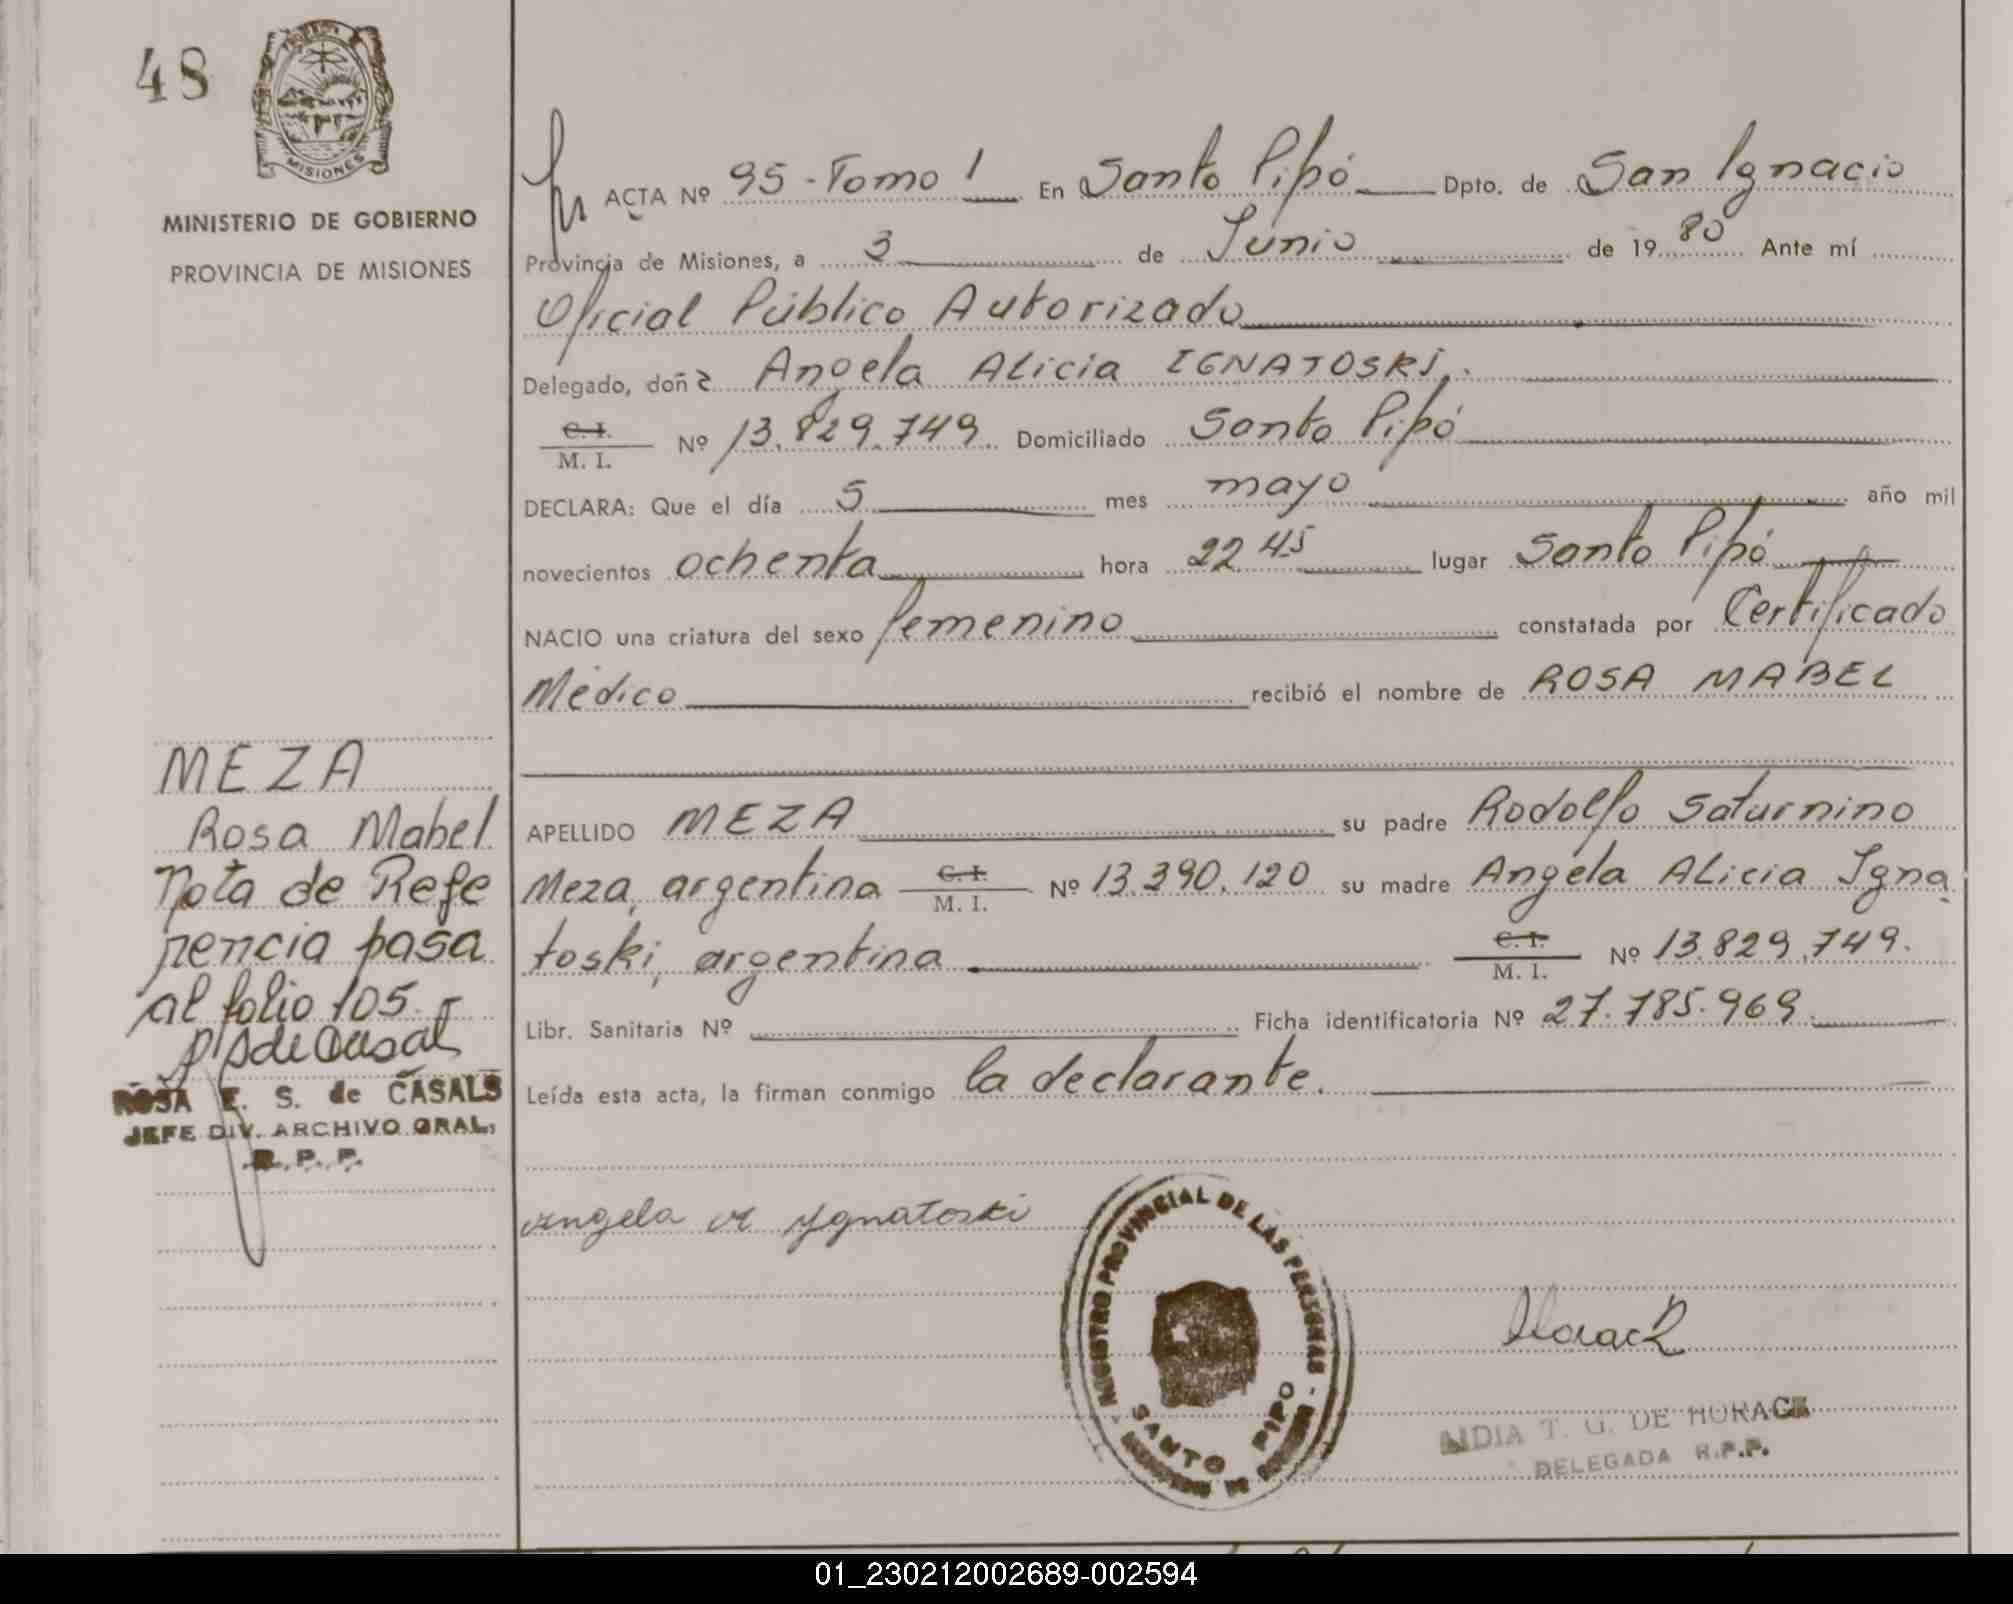 48
MISIONES
MINISTERIO DE GOBIERNO
PROVINCIA DE MISIONES
ACTA Nº 95 - Tomo 1 En Santo Pipó Dpto. de San Ignacio
Provincia de Misiones, a 3 de Junio de 1980 Ante mí
Oficial Público Autorizado
Delegado, doña Angela Alicia IGNATOSKI.
C. I. / M. I. Nº 13.829.749. Domiciliado Santo Pipó
DECLARA: Que el día 5 mes mayo año mil
novecientos ochenta hora 22 45 lugar Santo Pipó
NACIO una criatura del sexo femenino constatada por Certificado
Médico recibió el nombre de ROSA MABEL
APELLIDO MEZA su padre Rodolfo Saturnino
Meza, argentina C. I. / M. I. Nº 13.390.120 su madre Angela Alicia Igna
toski, argentina C. I. / M. I. Nº 13.829.749.
Libr. Sanitaria Nº Ficha identificatoria Nº 27.785.969.
Leída esta acta, la firman conmigo la declarante.
MEZA
Rosa Mabel
Nota de Refe
rencia pasa
al folio 105.-
ROSA E. S. de CASALS
JEFE DIV. ARCHIVO GRAL.
R. P. P.
Angela A Ygnatoski
REGISTRO PROVINCIAL DE LAS PERSONAS
SANTO PIPO
Horack
LIDIA T. G. DE HORACK
DELEGADA R.P.P.
01_230212002689-002594